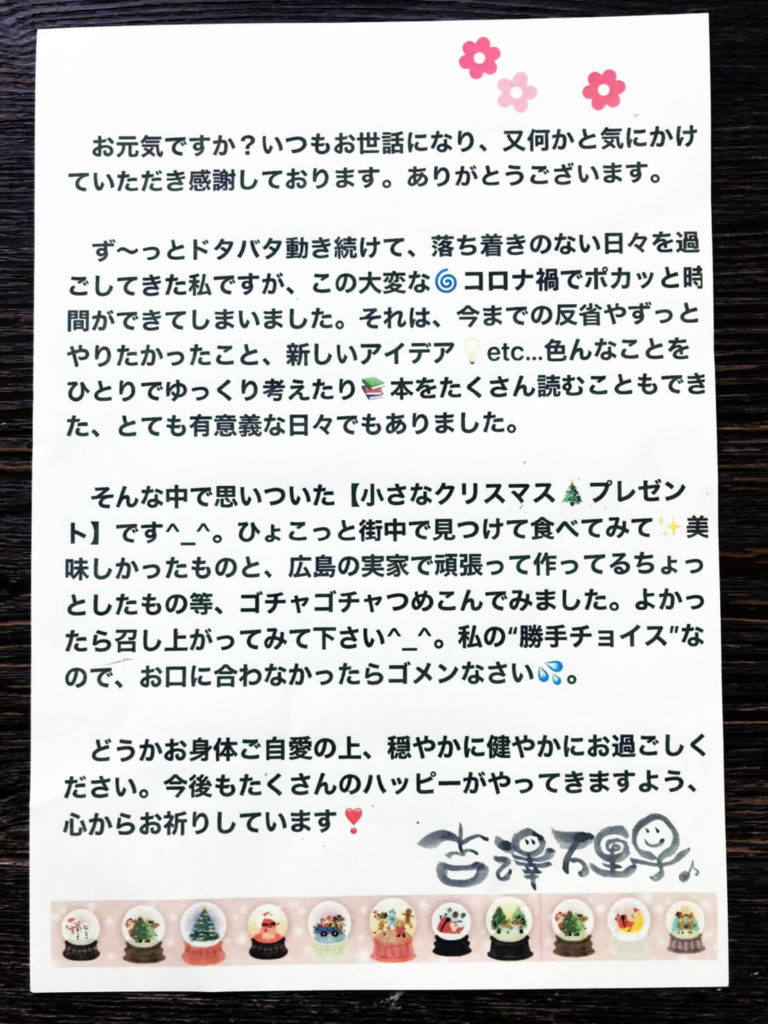 お元気ですか？いつもお世話になり、又何かと気にかけ
ていただき感謝しております。ありがとうございます。
ず〜っとドタバタ動き続けて、落ち着きのない日々を過
ごしてきた私ですが、この大変な🌀コロナ禍でポカッと時
間ができてしまいました。それは、今までの反省やずっと
やりたかったこと、新しいアイデア💡etc...色んなことを
ひとりでゆっくり考えたり📚本をたくさん読むこともでき
た、とても有意義な日々でもありました。
そんな中で思いついた【小さなクリスマス🎄プレゼン
ト】です^_^。ひょこっと街中で見つけて食べてみて✨美
味しかったものと、広島の実家で頑張って作ってるちょっ
としたもの等、ゴチャゴチャつめこんでみました。よかっ
たら召し上がってみて下さい^_^。私の“勝手チョイス”な
ので、お口に合わなかったらゴメンなさい💦。
どうかお身体ご自愛の上、穏やかに健やかにお過ごしく
ださい。今後もたくさんのハッピーがやってきますよう、
心からお祈りしています❣️